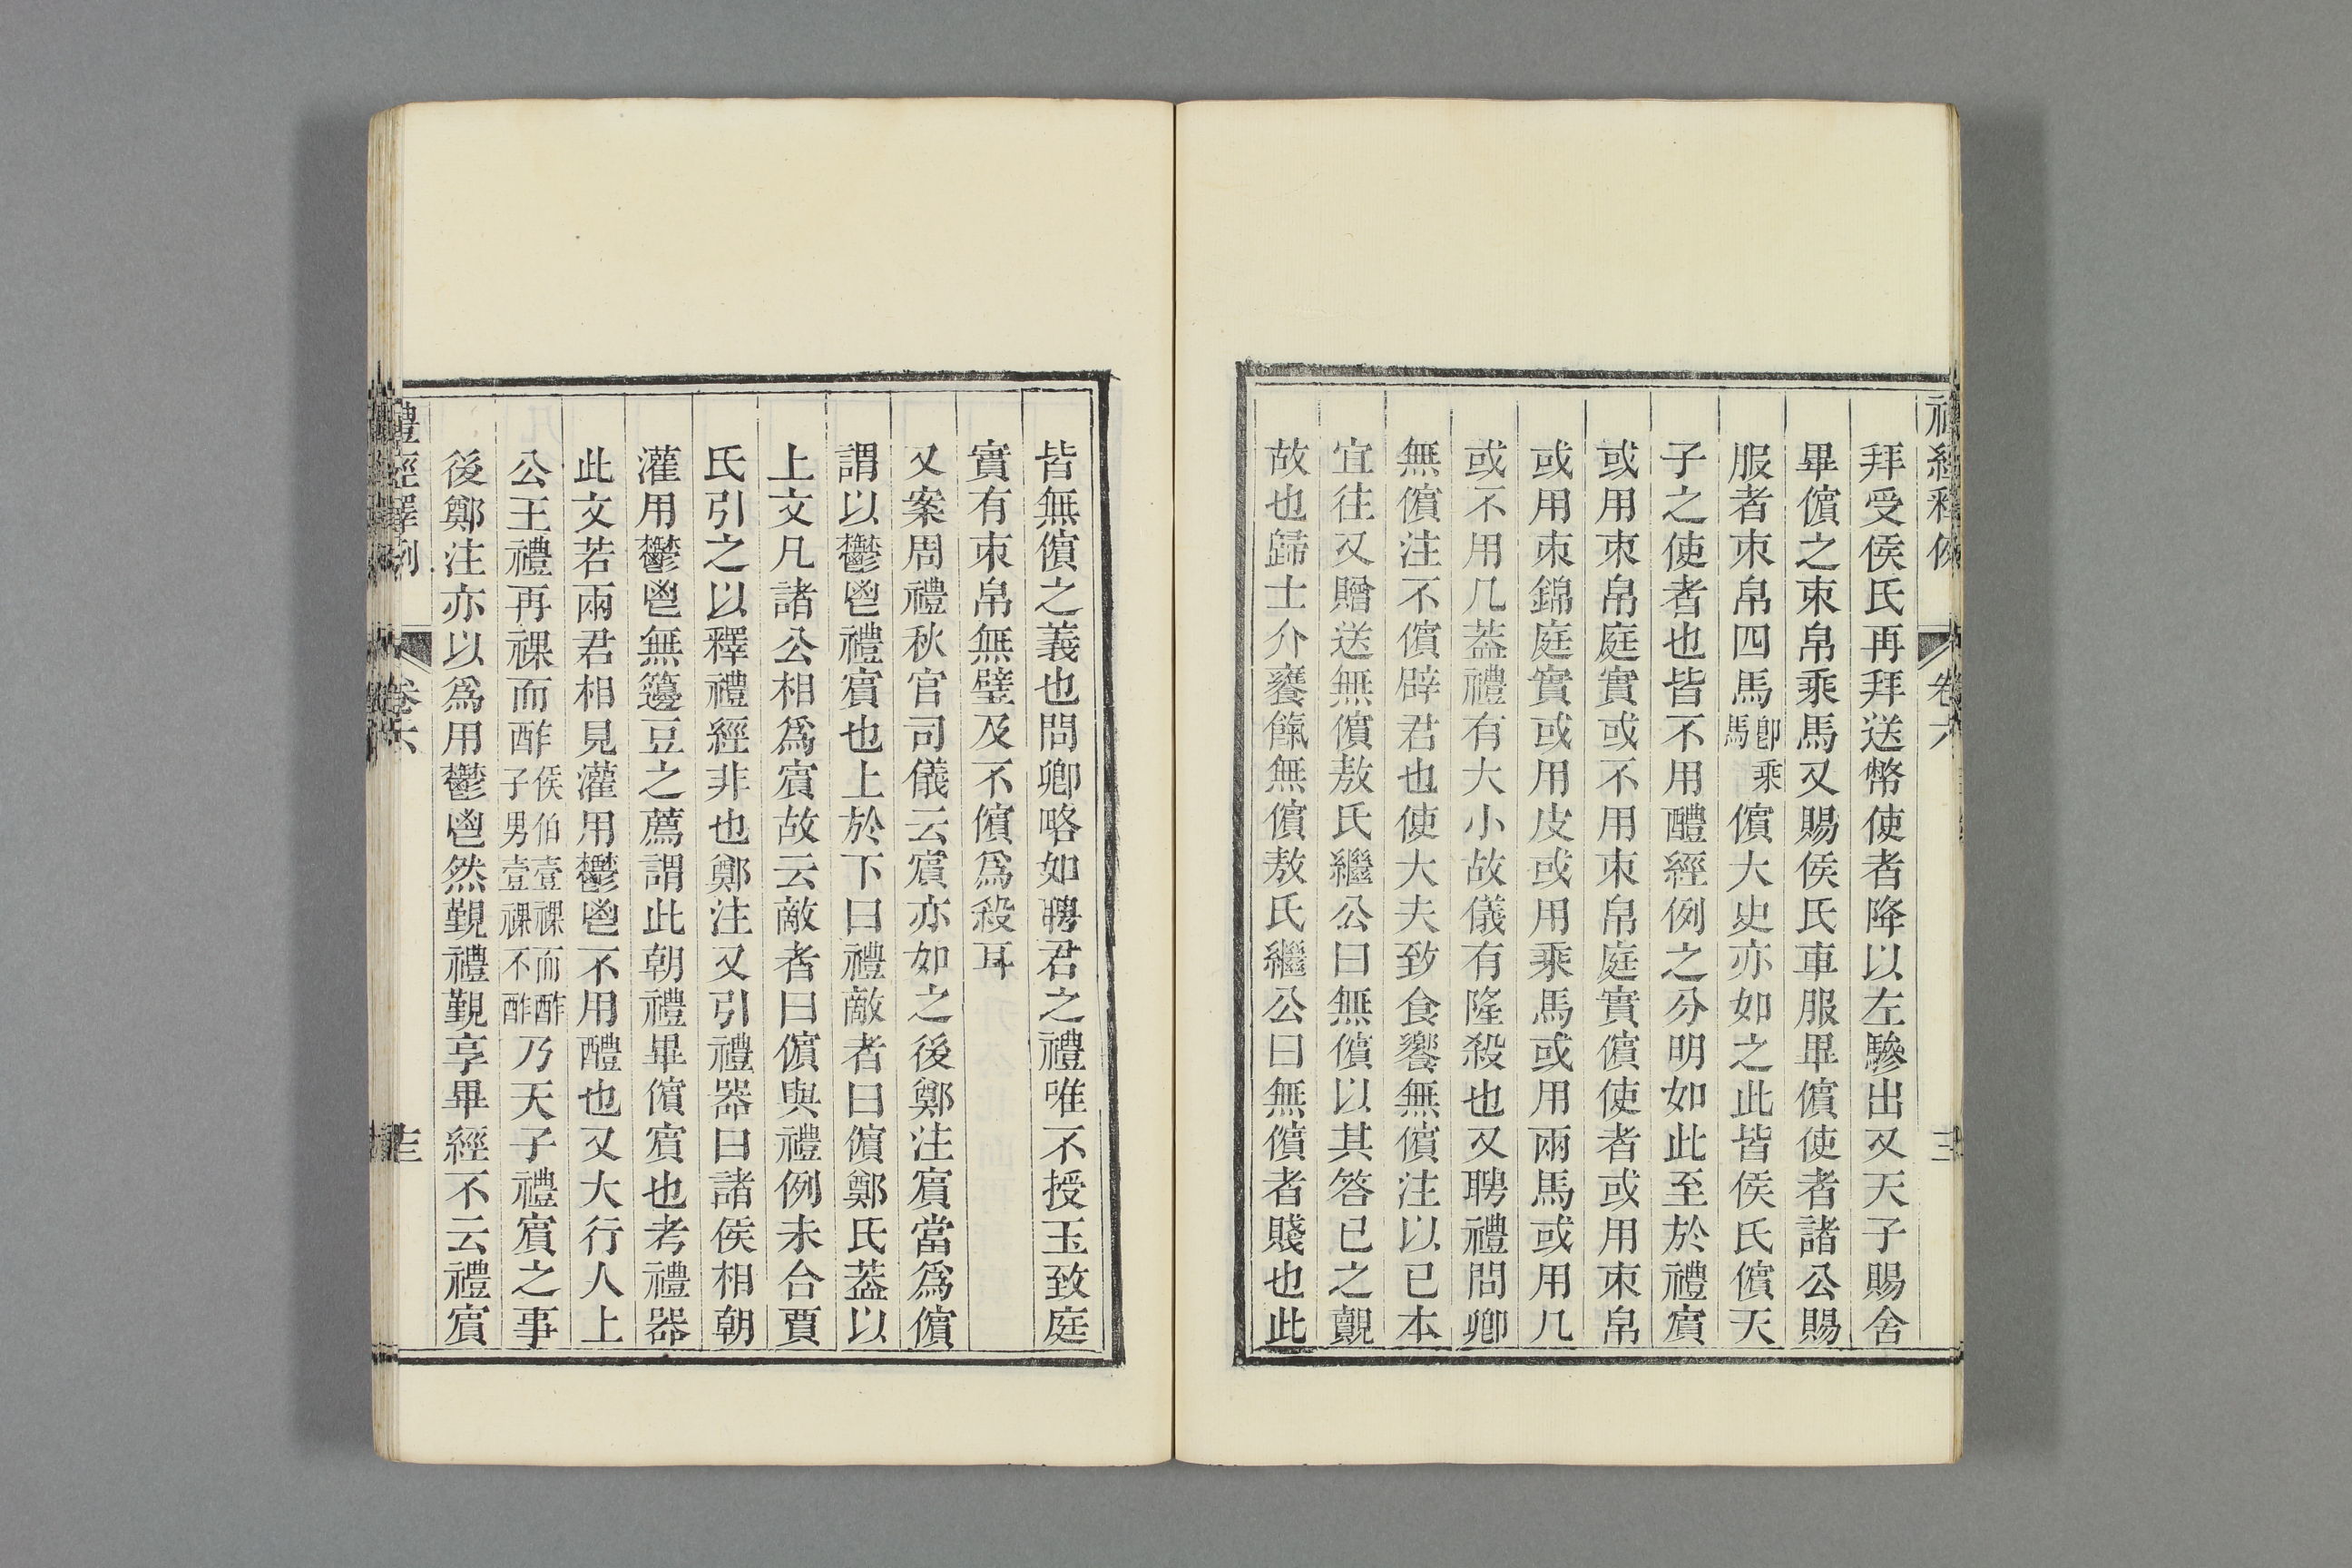 拜受侯氏再拜送幣使者降以左驂出又天子賜舍
畢儐之束帛乘馬又賜侯氏車服畢儐使者諸公賜
服者束帛四馬卽乘馬儐大史亦如之此皆侯氏儐天
子之使者也皆不用醴經例之分明如此至於禮賓
或用束帛庭實或不用束帛庭實儐使者或用束帛
或用束錦庭實或用皮或用乘馬或用兩馬或用几
或不用几葢禮有大小故儀有隆殺也又聘禮問卿
無儐注不儐辟君也使大夫致食饗無儐注以已本
宜往又贈送無儐敖氏繼公曰無儐以其答已之覿
故也歸士介饔餼無儐敖氏繼公曰無儐者賤也此
皆無儐之義也問卿略如聘君之禮唯不授玉致庭
實有束帛無璧及不儐爲殺耳
又案周禮秋官司儀云賓亦如之後鄭注賓當爲儐
謂以鬱鬯禮賓也上於下曰禮敵者曰儐鄭氏葢以
上文凡諸公相爲賓故云敵者曰儐與禮例未合賈
氏引之以釋禮經非也鄭注又引禮器曰諸侯相朝
灌用鬱鬯無籩豆之薦謂此朝禮畢儐賓也考禮器
此文若兩君相見灌用鬱鬯不用醴也又大行人上
公王禮再祼而酢侯伯壹祼而酢子男壹祼不酢乃天子禮賓之事
後鄭注亦以爲用鬱鬯然覲禮覲享畢經不云禮賓
禮經釋例 卷六